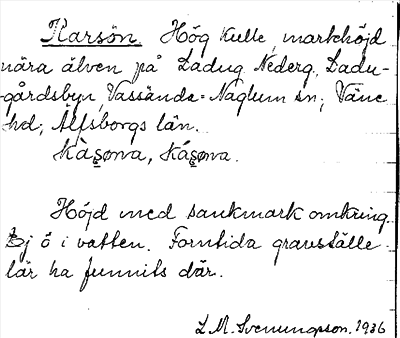 Karsön. Hög kulle, markhöjd
nära älven på Ladug. Nederg. Ladu-
gårdsbyn, Vassända-Naglum sn; Väne
hd; Älfsborgs län.
Höjd med sankmark omkring.
Ej ö i vatten. Forntida gravställe
lär ha funnits där.
L.M. Svenungsson. 1936